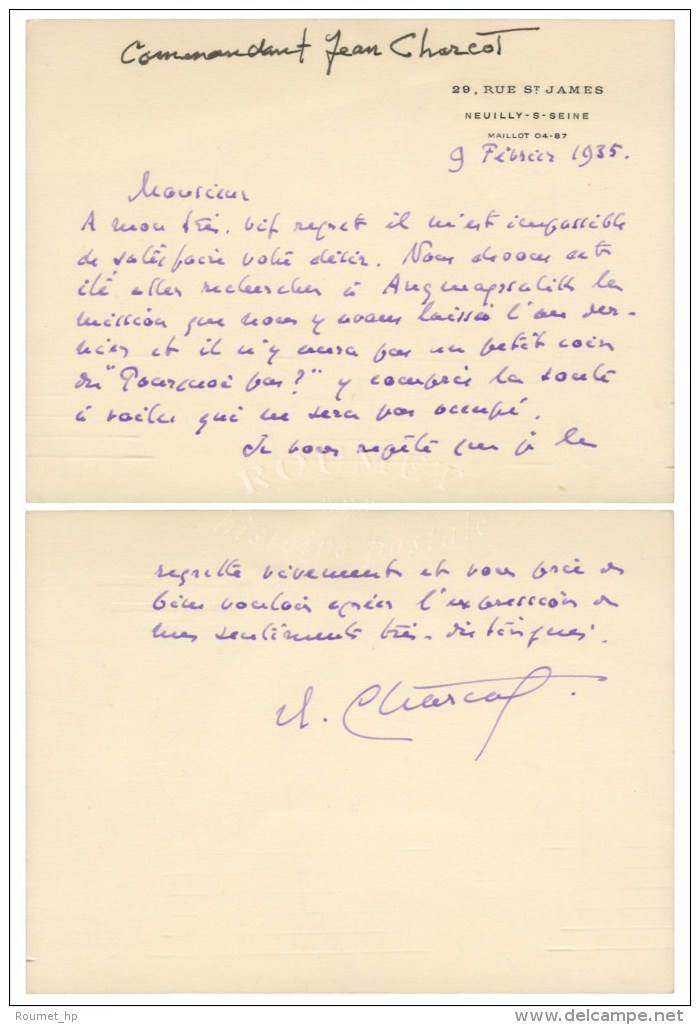 Commandant Jean Charcot
29, RUE ST JAMES
NEUILLY-S-SEINE
MAILLOT 04-87
9 Février 1935.
Monsieur
A mon très vif regret il m'est impossible
de satisfaire votre désir. Nous devons cet
été aller rechercher à Angmagssalik la
mission que nous y avons laissé l'an der-
nier et il n'y aura pas un petit coin
du "Pourquoi pas?" y compris la soute
à voiles qui ne sera pas occupé.
Je vous répète que je le
ROUMET
regrette vivement et vous prie de
bien vouloir agréer l'expression de
mes sentiments très distingués.
J. Charcot
Roumet_hp
www.delcampe.net